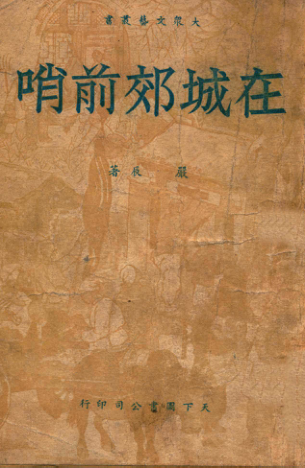 大眾文藝叢書
在城郊前哨
嚴辰著
天下圖書公司印行